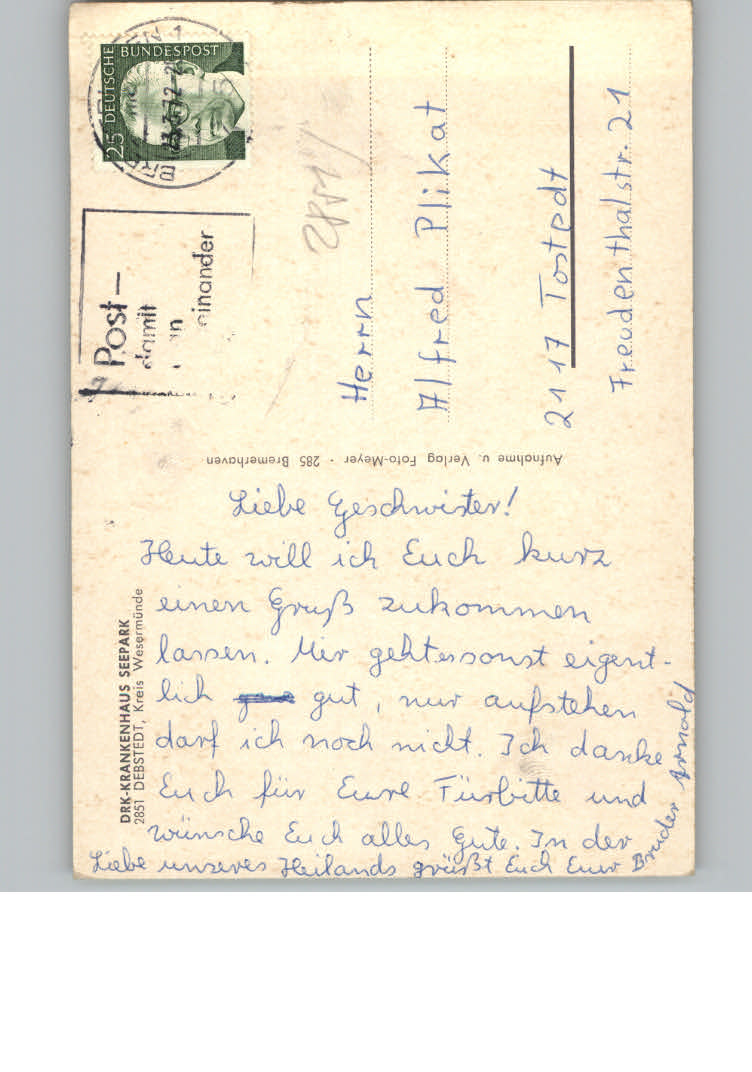 DRK-KRANKENHAUS SEEPARK
2851 DEBSTEDT, Kreis Wesermünde
Liebe Geschwister!
Heute will ich Euch kurz
einen Gruß zukommen
lassen. Mir geht es sonst eigent-
lich gut, nur aufstehen
darf ich noch nicht. Ich danke
Euch für Eure Fürbitte und
wünsche Euch alles Gute. In der
Liebe unseres Heilands grüßt Euch Euer Bruder Arnold
Aufnahme u. Verlag Foto-Meyer · 285 Bremerhaven
Post—
damit
einander
25 DEUTSCHE BUNDESPOST
2851
Herrn
Alfred Plikat
2117 Tostedt
Freudenthalstr. 21